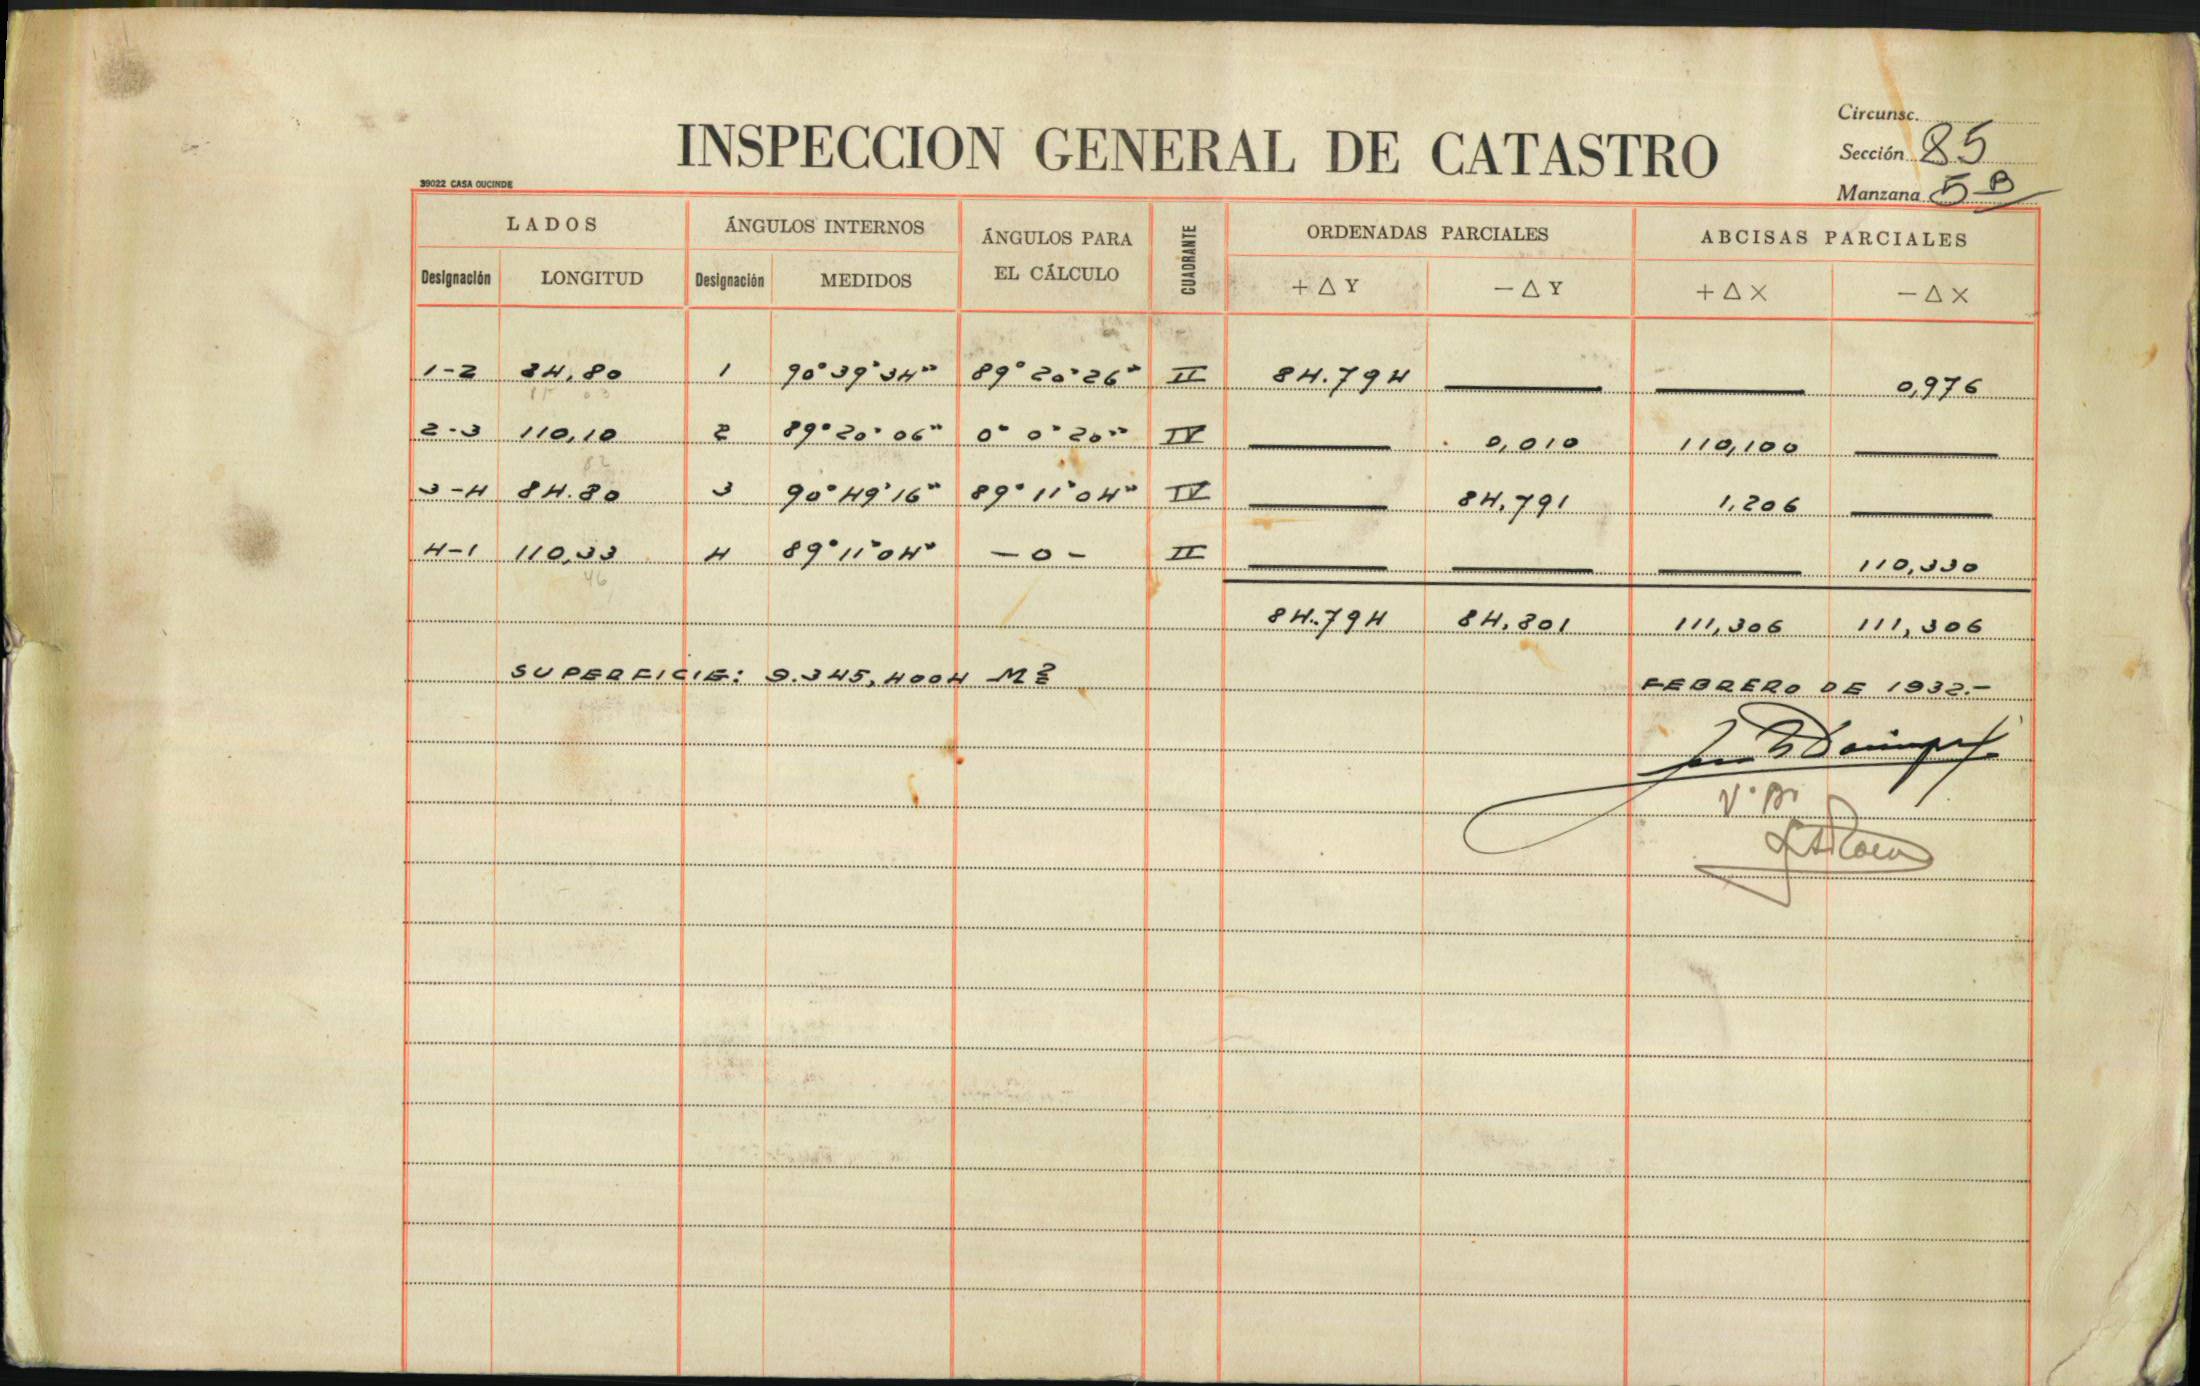 Circunsc.
INSPECCION GENERAL DE CATASTRO
Sección 85
39022 CASA OUCINDE
Manzana 5B
LADOS ÁNGULOS INTERNOS ÁNGULOS PARA EL CÁLCULO CUADRANTE ORDENADAS PARCIALES ABCISAS PARCIALES
Designación LONGITUD Designación MEDIDOS + Δ Y — Δ Y + Δ X — Δ X
1-2 84,80 1 90° 39' 34" 89° 20' 26" II 84.794 0,976
2-3 110,10 2 89° 20' 06" 0° 0' 20" IV 0,010 110,100
82
3-4 84.80 3 90° 49' 16" 89° 11' 04" IV 84,791 1,206
4-1 110,33 4 89° 11' 04" — 0 — II 110,330
46
84.794 84,801 111,306 111,306
SUPERFICIE: 9.345,4004 M2
FEBRERO DE 1932.-